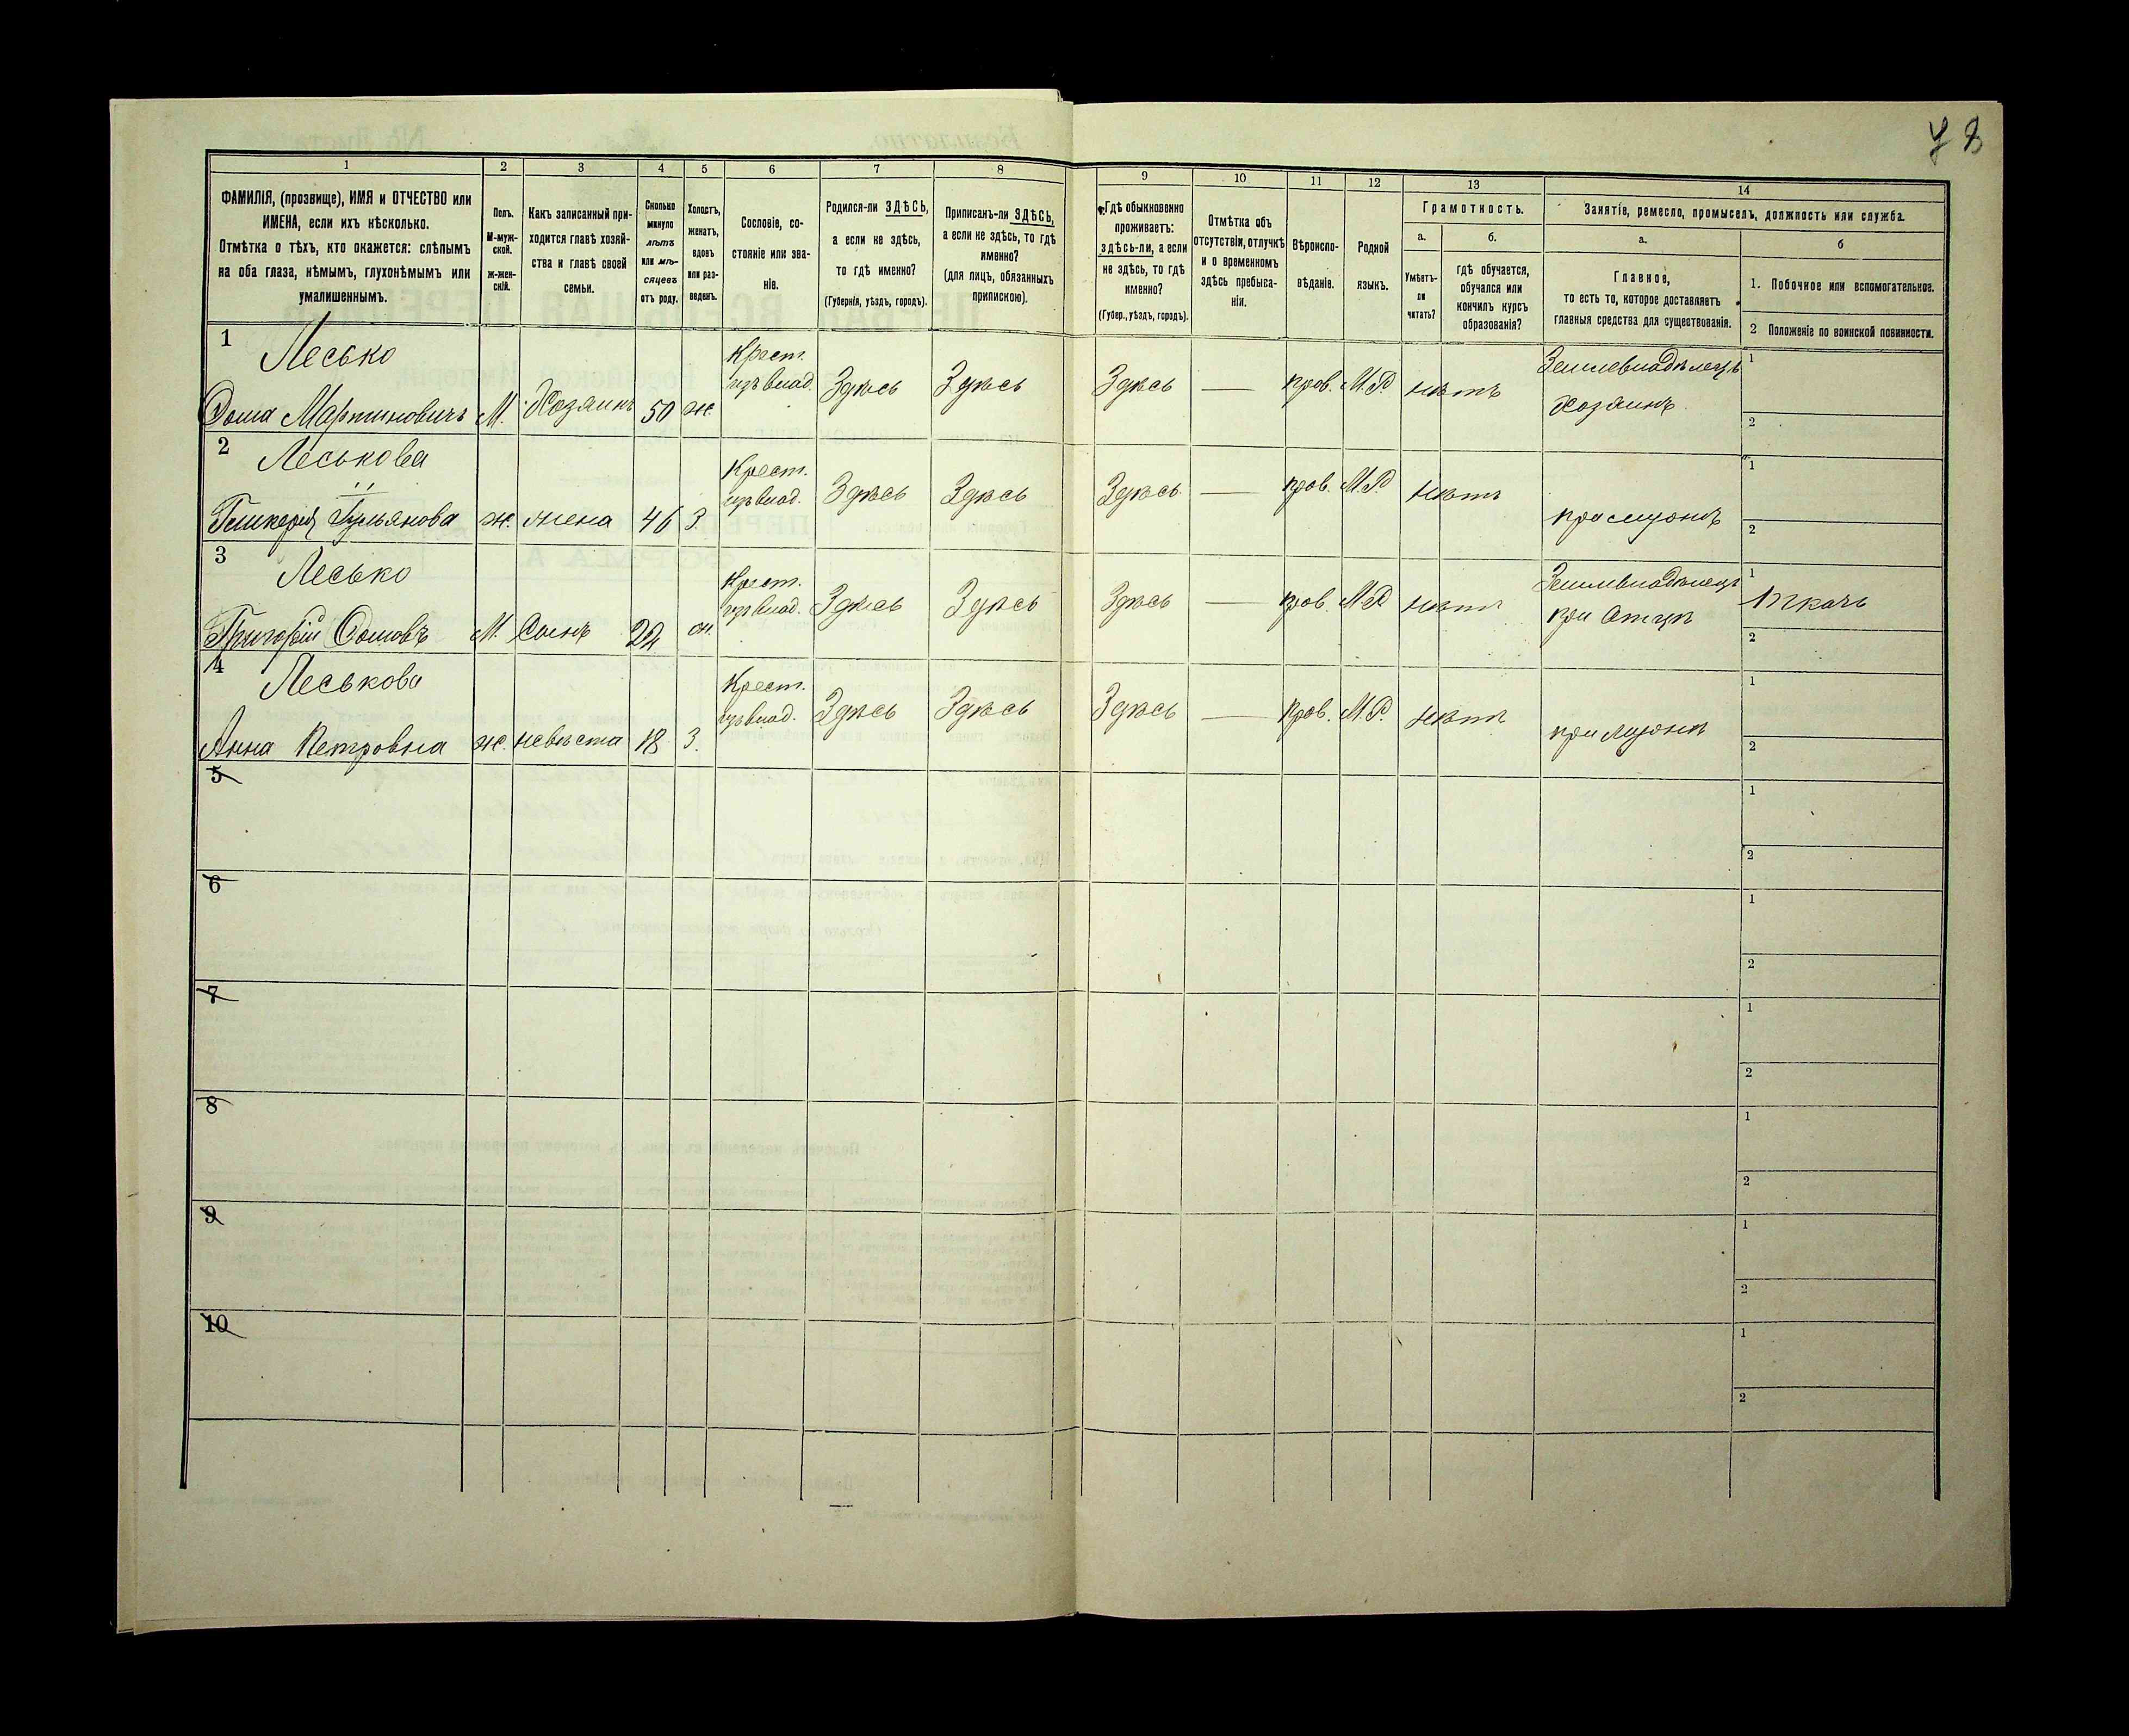 73
1 2 3 4 5 6 7 8 9 10 11 12 13 14
ФАМИЛІЯ, (прозвище), ИМЯ и ОТЧЕСТВО или
ИМЕНА, если ихъ нѣсколько.
Отмѣтка о тѣхъ, кто окажется: слѣпымъ
на оба глаза, нѣмымъ, глухонѣмымъ или
умалишеннымъ.
Полъ.
М-муж-
ской.
ж-жен-
скій.
Какъ записанный при-
ходится главѣ хозяй-
ства и главѣ своей
семьи.
Сколько
минуло
лѣтъ
или мѣ-
сяцевъ
отъ роду.
Холостъ,
женатъ,
вдовъ
или раз-
веденъ.
Сословіе, со-
стояніе или зва-
ніе.
Родился-ли ЗДѢСЬ,
а если не здѣсь,
то гдѣ именно?
(Губернія, уѣздъ, городъ).
Приписанъ-ли ЗДѢСЬ,
а если не здѣсь, то гдѣ
именно?
(для лицъ, обязанныхъ
припискою).
Гдѣ обыкновенно
проживаетъ:
здѣсь-ли, а если
не здѣсь, то гдѣ
именно?
(Губер., уѣздъ, городъ).
Отмѣтка объ
отсутствіи, отлучкѣ
и о временномъ
здѣсь пребыва-
ніи.
Вѣроиспо-
вѣданіе.
Родной
языкъ.
Грамотность.
а.
Умѣетъ-
ли
читать?
б.
гдѣ обучается,
обучался или
кончилъ курсъ
образованія?
Занятіе, ремесло, промыселъ, должность или служба.
а.
Главное,
то есть то, которое доставляетъ
главныя средства для существованія.
б
1. Побочное или вспомогательное.
2 Положеніе по воинской повинности.
1 Лесько Крест. Землевладѣлецъ 1
изъ влад. Здѣсь Здѣсь Здѣсь — прав. М.Р. нѣтъ
Ѳома Мартиновичъ М. Хозяинъ 50 ж. хозяинъ 2
2 Леськова Крест. 1
изъ влад. Здѣсь Здѣсь Здѣсь — прав. М.Р. нѣтъ
ж. жена 46 З. при мужѣ 2
3 Лесько Крест. Землевладѣлецъ 1
изъ влад. Здѣсь Здѣсь Здѣсь — прав. М.Р. нѣтъ Ткачъ
Григорій Ѳомовъ М. Сынъ 22 ж. при Отцѣ 2
4 Леськова Крест. 1
изъ влад. Здѣсь Здѣсь Здѣсь — прав. М.Р. нѣтъ
Анна Петровна ж. невѣста 18 З. при мужѣ 2
5 1
2
6 1
2
7 1
2
8 1
2
9 1
2
10 1
2